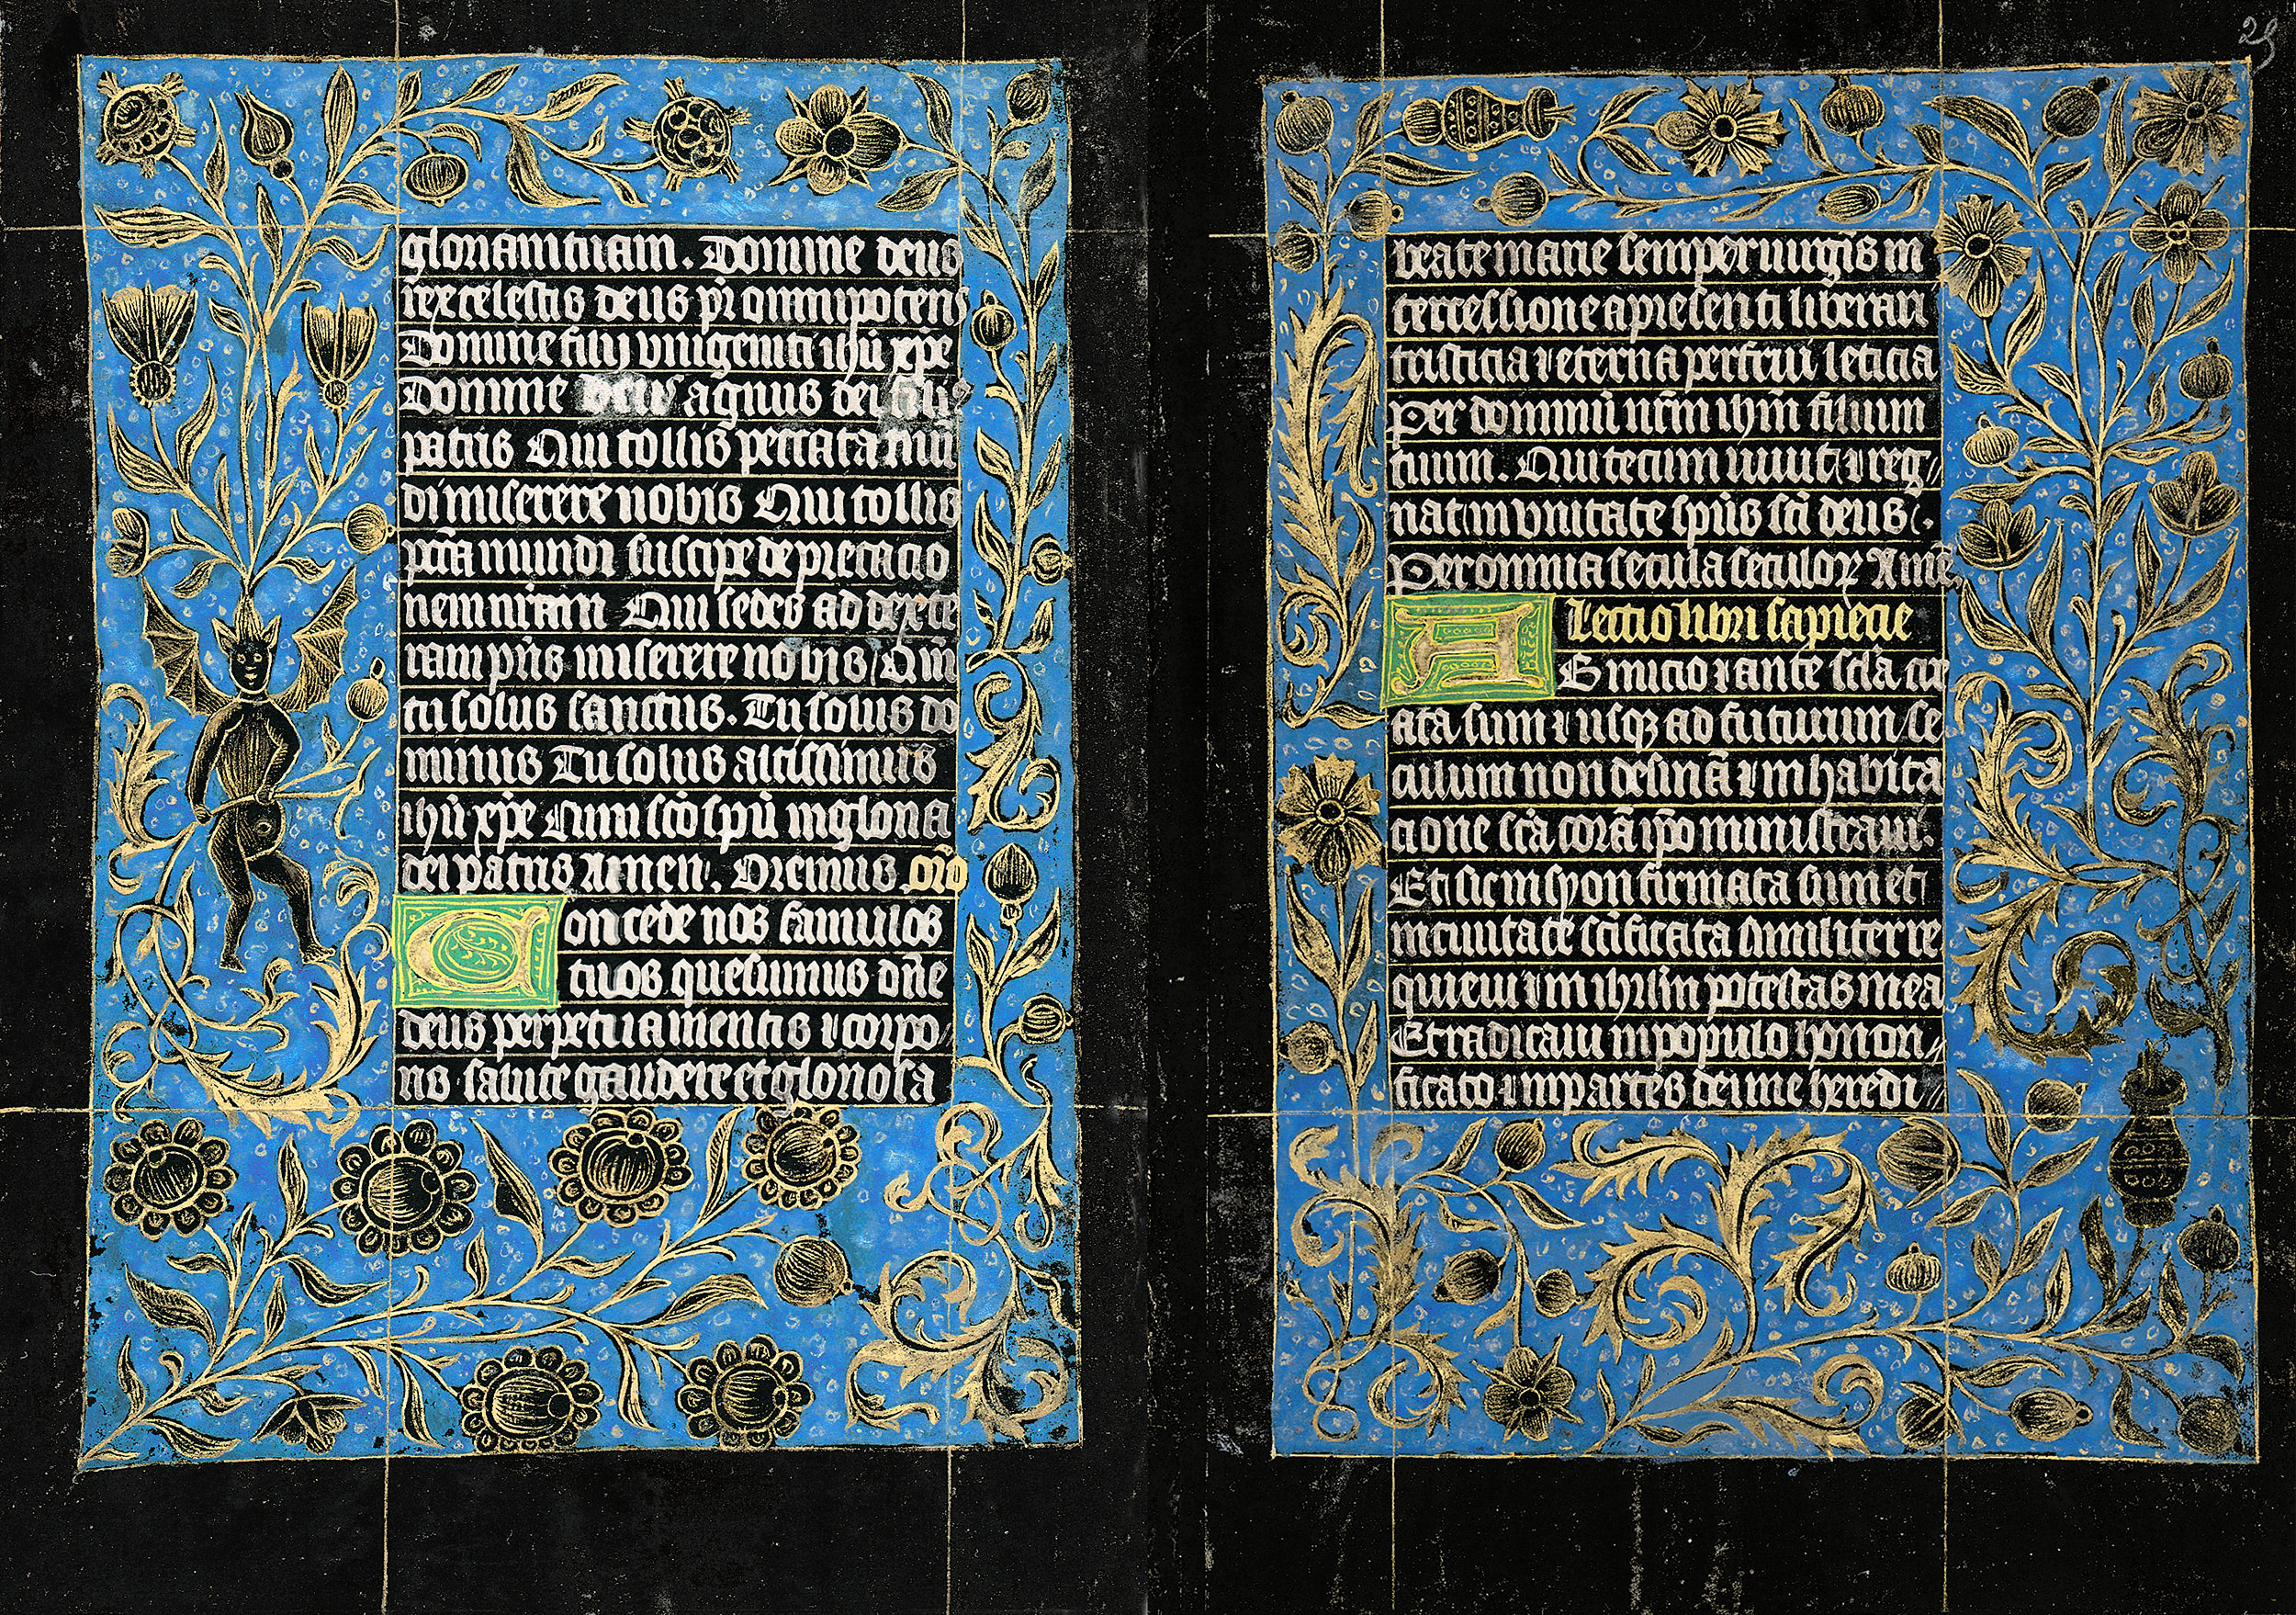 gloriam tuam. Domine deus
rex celestis deus pr̄ omnipotens
Domine fili vnigeniti ihū xp̄e
Domine deus agnus dei filiꝰ
patris Qui tollis peccata mū
di miserere nobis Qui tollis
pctā mundi suscipe deprecacio
nem nr̄am Qui sedes ad dexte
ram pr̄is miserere nobis Qm̄
tu solus sanctus. Tu solus do
minus Tu solus altissimus
ihū xp̄e Cum sc̄o spū in gloria
dei patris Amen. Oremus. or̄o
Concede nos famulos
tuos quesumus dn̄e
deus perpetua mentis ⁊ corpo
ris salute gaudere et gloriosa
25
beate marie semper uirgīs in
tercessione a presenti liberari
tristicia ⁊ eterna perfrui leticia
Per dominū nr̄m ihm̄ filium
tuum. Qui tecum uiuit ⁊ reg〃
nat in vnitate spūs sc̄i deus.
Per omnia secula seculoꝝ Amē
Lectio libri sapiēcie
AB inicio ⁊ ante scl̄a cre
ata sum ⁊ usqꝫ ad futurum se
culum non desinā ⁊ in habita
cione sc̄a corā ip̄o ministraui.
Et sic in syon firmata sum et
in ciuitate sc̄ificata similiter re
quieui ⁊ in ihrl̄m potestas mea
Et radicaui in populo honori〃
ficato ⁊ in partes dei me heredi〃